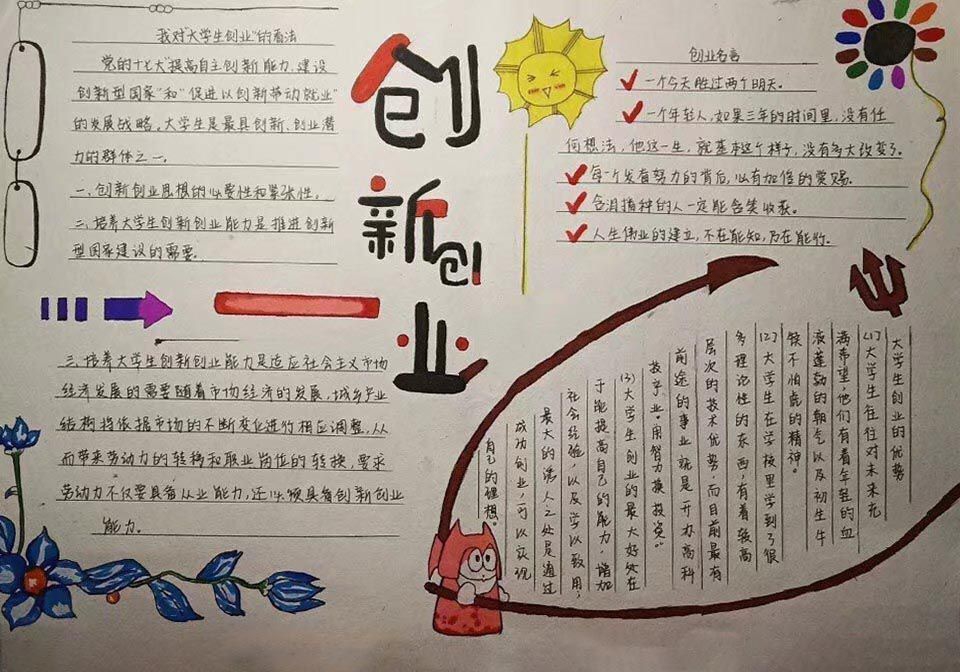 我对"大学生创业"的看法
党的十七大"提高自主创新能力、建设
创新型国家"和"促进以创新带动就业"
的发展战略。大学生是最具创新、创业潜
力的群体之一。
一、创新创业思想的必要性和紧张性。
二、培养大学生创新创业能力是推进创新
型国家建设的需要.
三、培养大学生创新创业能力是适应社会主义市场
经济发展的需要随着市场经济的发展、城乡产业
结构将依据市场的不断变化进行相应调整,从
而带来劳动力的转移和职业岗位的转换,要求
劳动力不仅要具备从业能力,还必须具备创新创业
能力。
创
新创
业
创业名言
一个今天胜过两个明天。
一个年轻人,如果三年的时间里,没有任
何想法,他这一生,就基本这个样子,没有多大改变了。
每个发奋努力的背后,必有加倍的赏赐。
含泪播种的人一定能含笑收获。
人生伟业的建立,不在能知,乃在能行。
大学生创业的优势
(1)大学生往往对未来充
满希望,他们有着年轻的血
液蓬勃的朝气以及初生牛
犊不怕虎的精神。
(2)大学生在学校里学到了很
多理论性的东西,有着较高
层次的技术优势而目前最有
前途的事业就是开办高科
技产业。用智力换投资。"
(3)大学生创业的最大好处在
于能提高自己的能力,增加
社会经验,以及学以致用,
最大的诱人之处是通过
成功创业,可以实现
自己的理想。